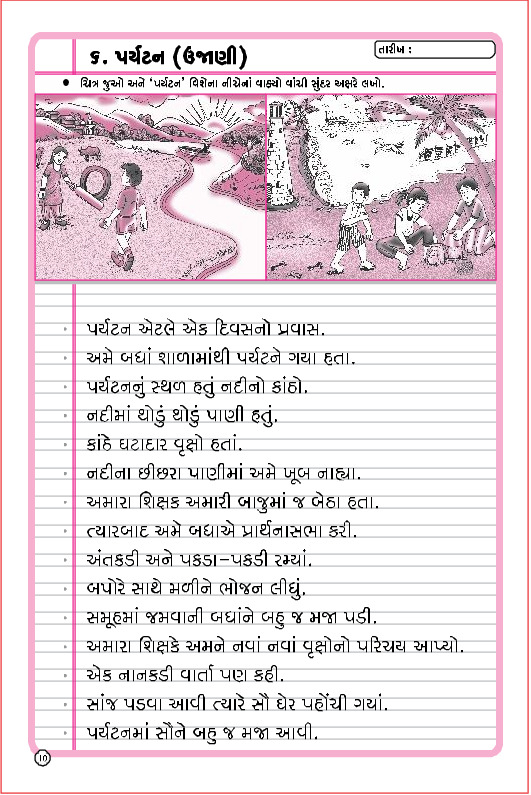 ૬. પર્યટન (ઉજાણી)
તારીખ :
• ચિત્ર જુઓ અને ‘પર્યટન’ વિશેના નીચેનાં વાક્યો વાંચી સુંદર અક્ષરે લખો.
· પર્યટન એટલે એક દિવસનો પ્રવાસ.
· અમે બધાં શાળામાંથી પર્યટને ગયા હતા.
· પર્યટનનું સ્થળ હતું નદીનો કાંઠો.
· નદીમાં થોડું થોડું પાણી હતું.
· કાંઠે ઘટાદાર વૃક્ષો હતાં.
· નદીના છીછરા પાણીમાં અમે ખૂબ નાહ્યા.
· અમારા શિક્ષક અમારી બાજુમાં જ બેઠા હતા.
· ત્યારબાદ અમે બધાએ પ્રાર્થનાસભા કરી.
· અંતકડી અને પકડા-પકડી રમ્યાં.
· બપોરે સાથે મળીને ભોજન લીધું.
· સમૂહમાં જમવાની બધાંને બહુ જ મજા પડી.
· અમારા શિક્ષકે અમને નવાં નવાં વૃક્ષોનો પરિચય આપ્યો.
· એક નાનકડી વાર્તા પણ કહી.
· સાંજ પડવા આવી ત્યારે સૌ ઘેર પહોંચી ગયાં.
· પર્યટનમાં સૌને બહુ જ મજા આવી.
૧૦